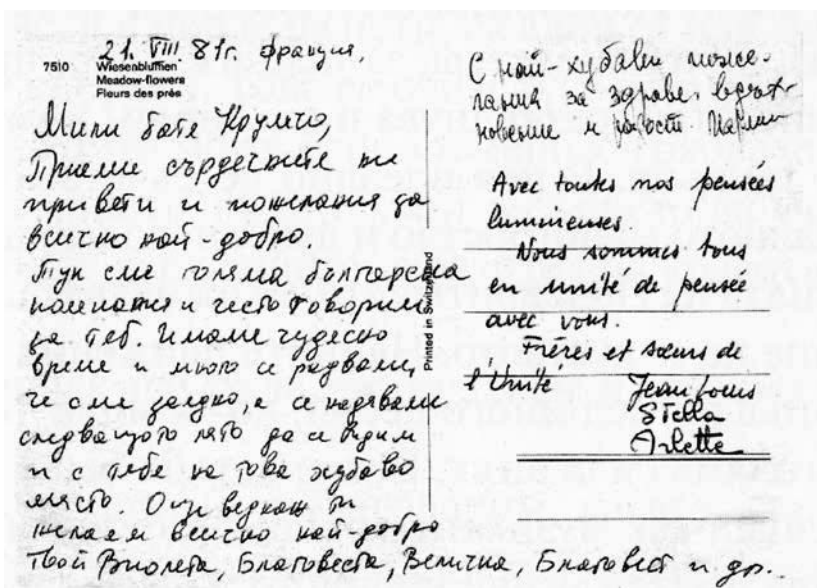 7510
21. VIII. 81г. Франция,
Wiesenblumen
Meadow-flowers
Fleurs des prés
Мили бате Крумчо,
Приеми сърдечните ни
привети и пожелания за
всичко най-добро.
Тук сме голяма българска
компания и често говорим
за теб. Имаме чудесно
време и много се радваме,
че сме заедно, а се надяваме
следващото лято да се видим
и с тебе на това хубаво
място. Още веднъж ти
желаем всичко най-добро
Твои Виолета, Благовеста, Величка, Благовест и др..
Printed in Switzerland
С най-хубави поже-
лания за здраве, вдъх-
новение и радост.
Avec toutes nos pensées
lumineuses.
Nous sommes tous
en unité de pensée
avec vous.
Frères et sœurs de
l'Unité
Jean Louis
Stella
Arlette